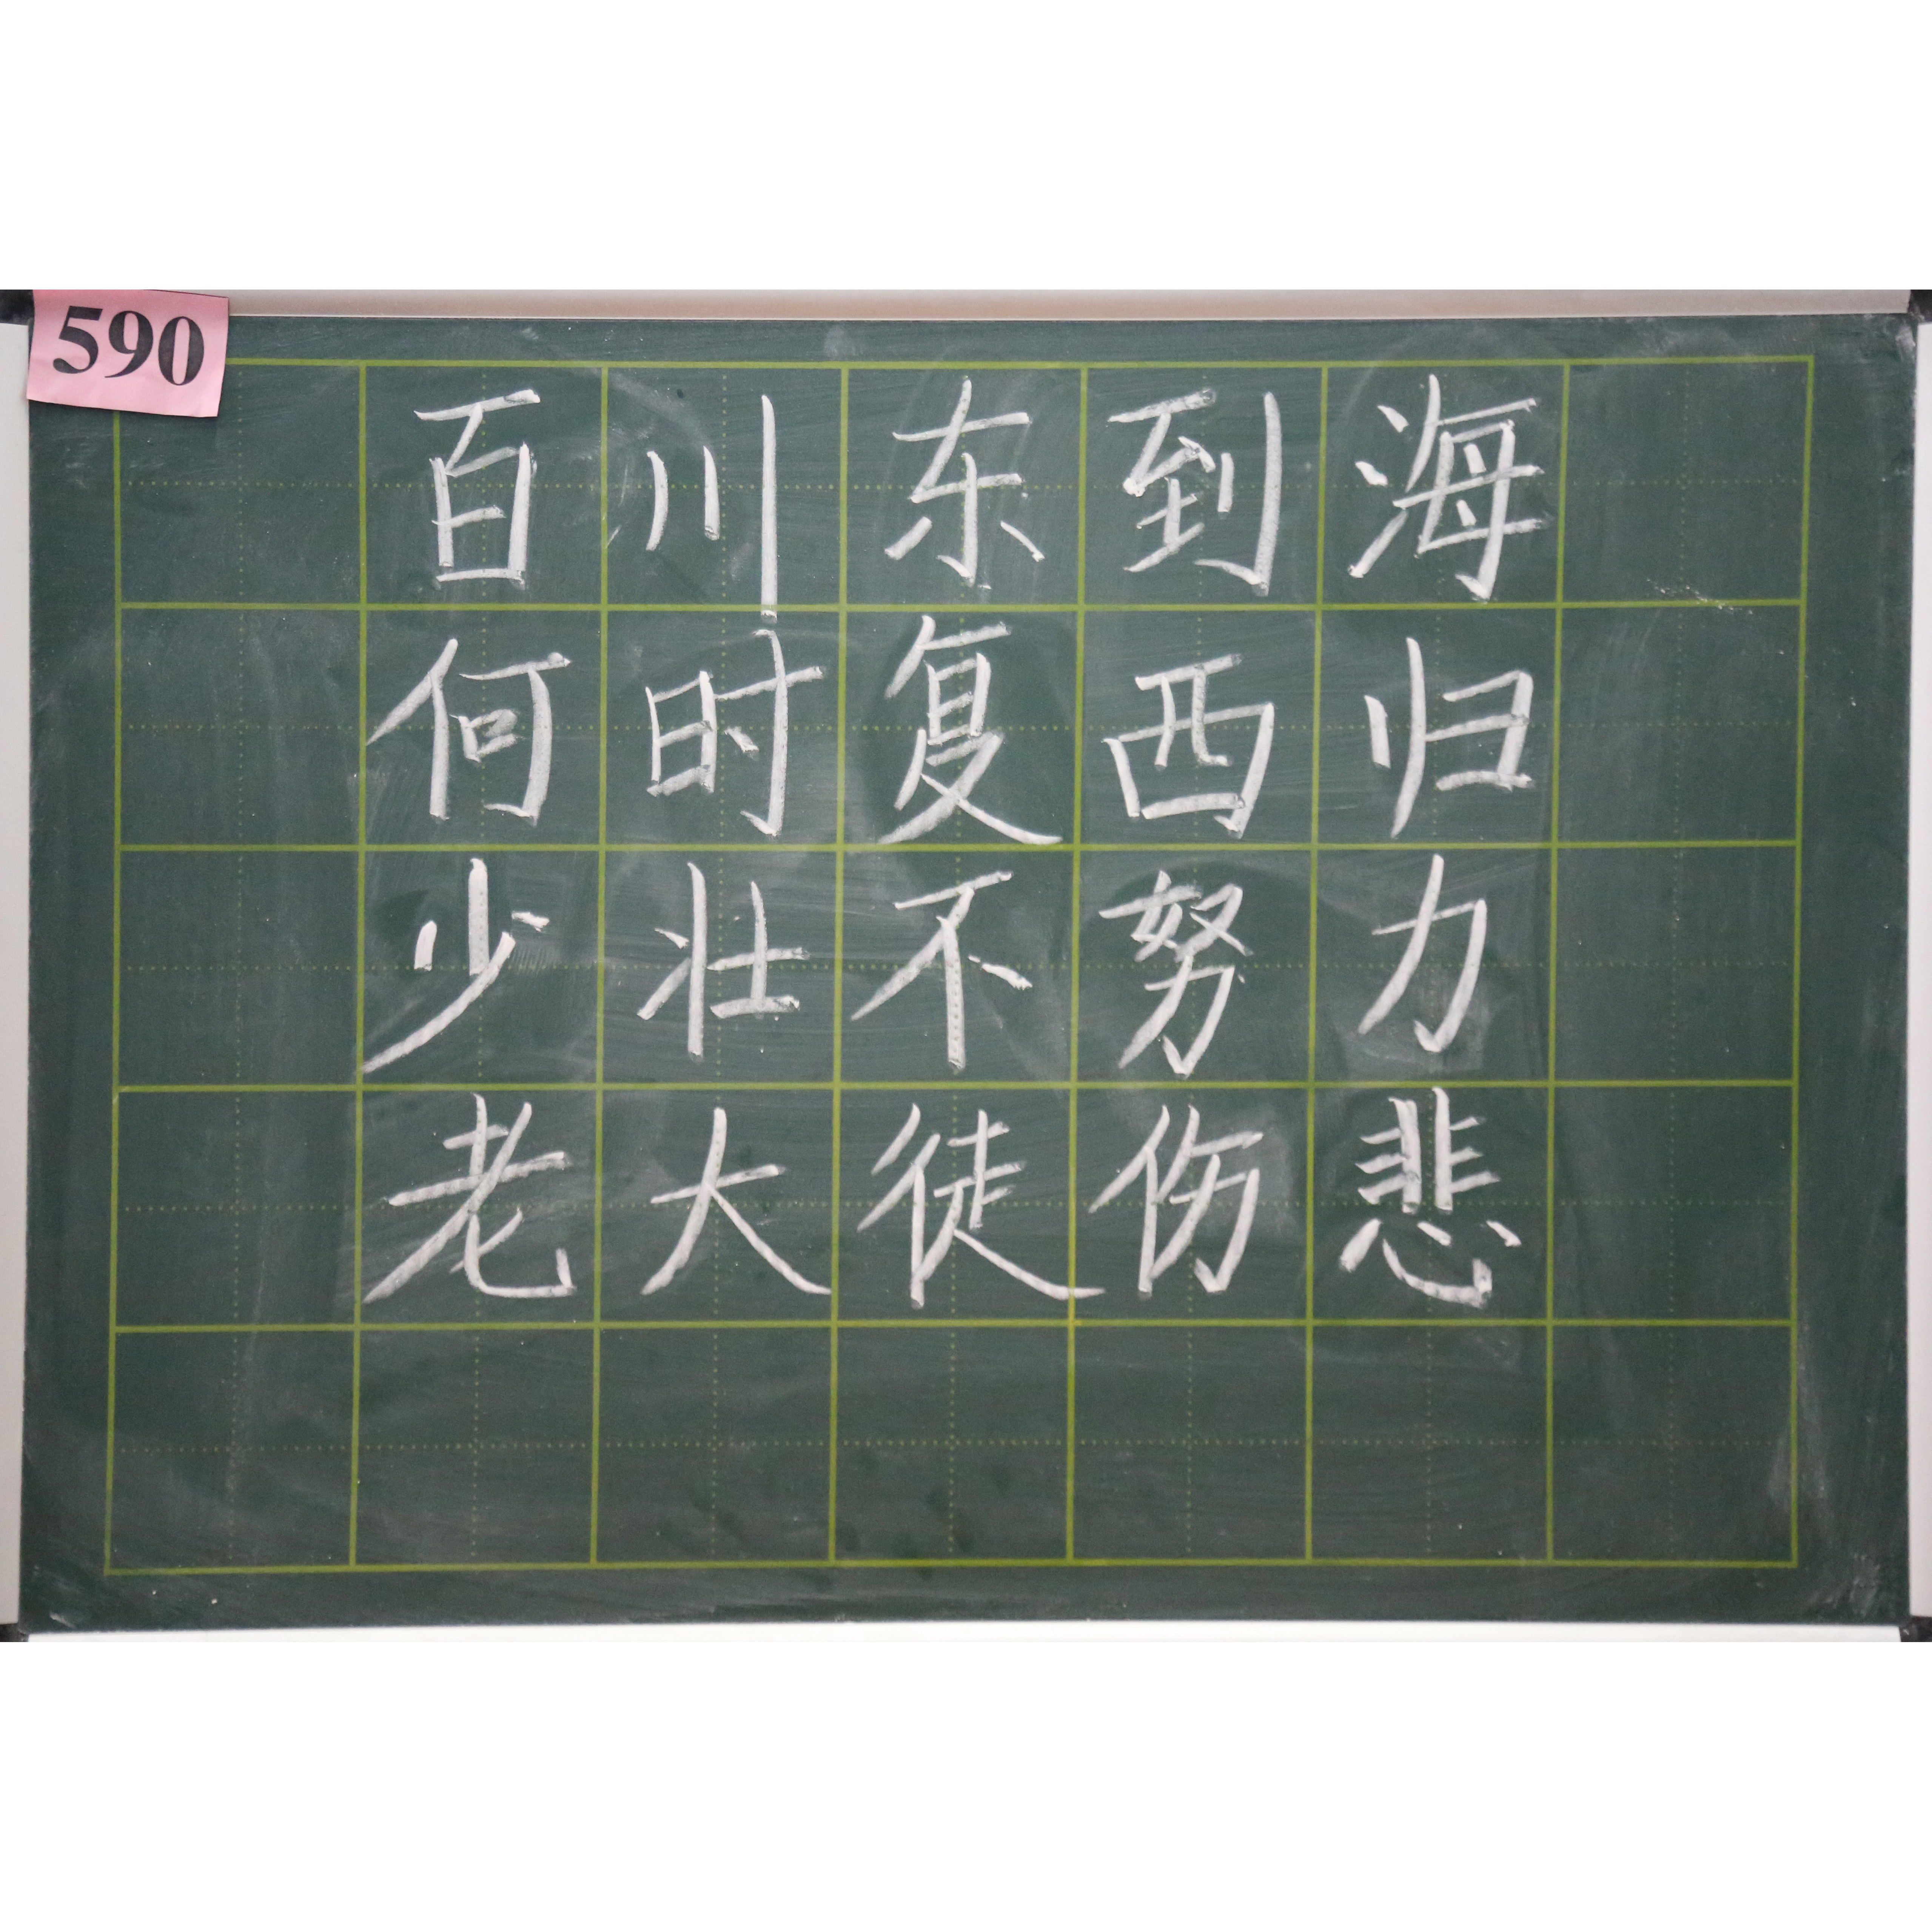 590
百川东到海
何时复西归
少壮不努力
老大徒伤悲